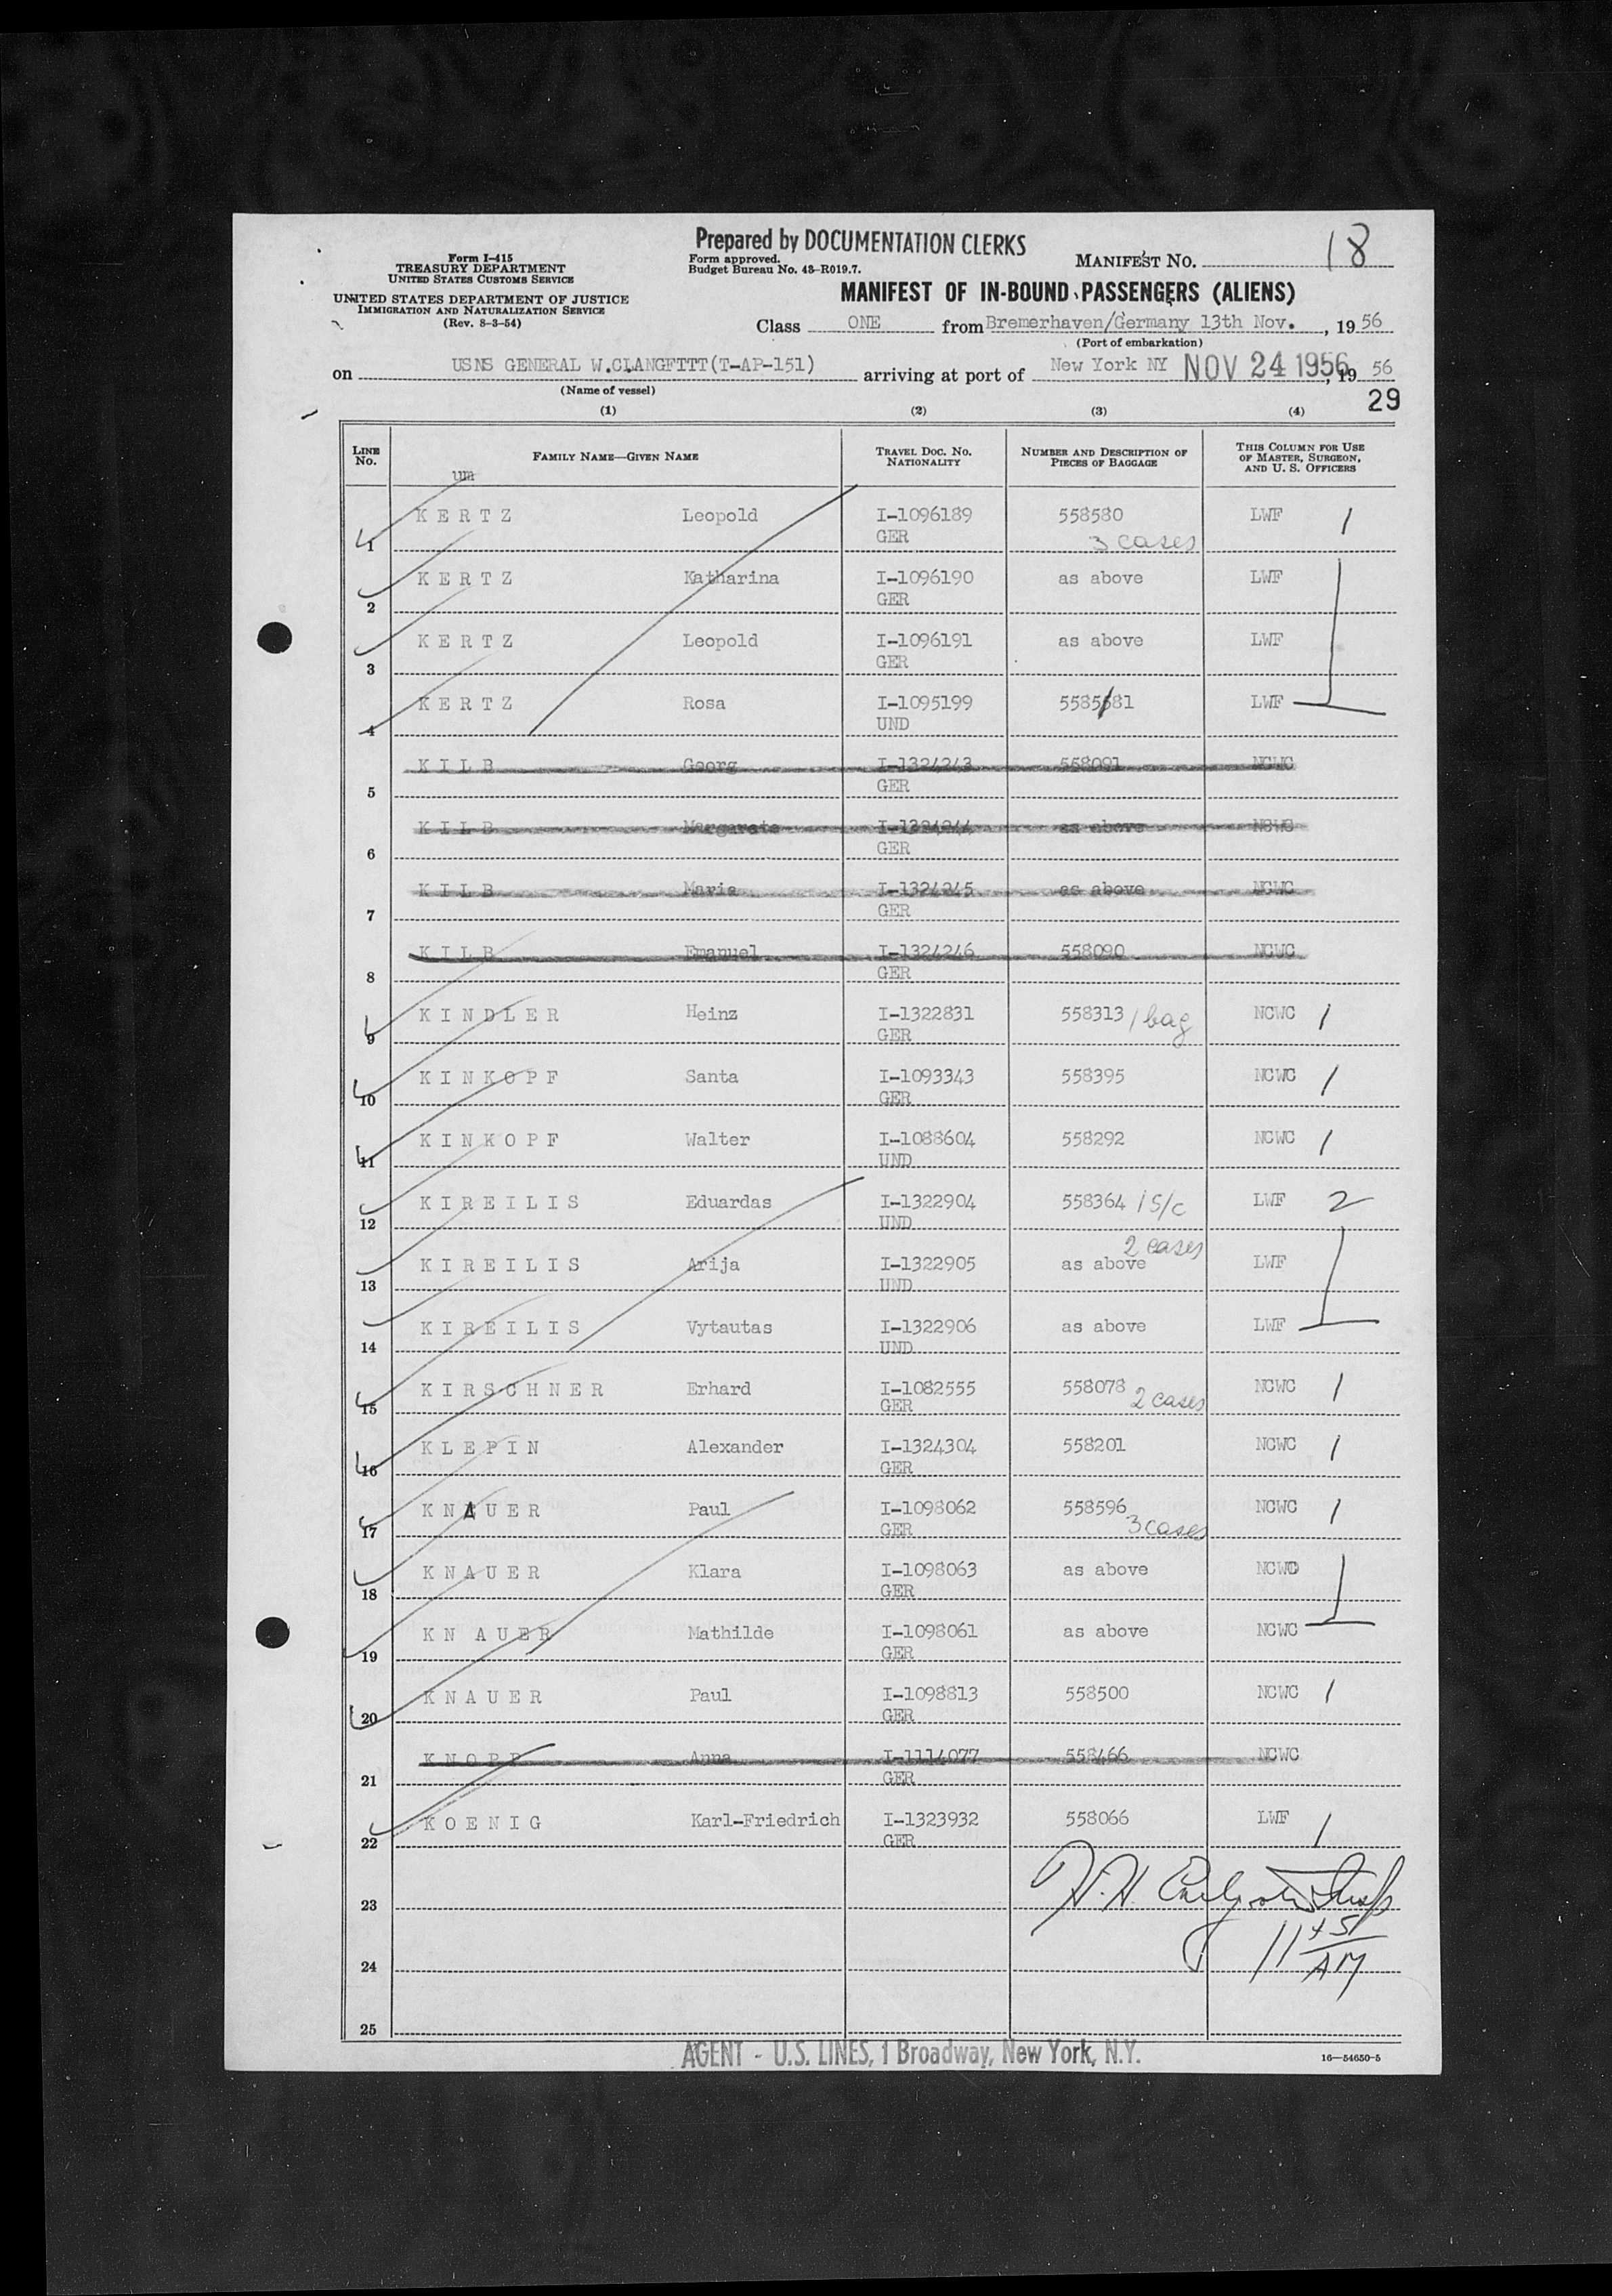 Prepared by DOCUMENTATION CLERKS
Form I-415
TREASURY DEPARTMENT
UNITED STATES CUSTOMS SERVICE
UNITED STATES DEPARTMENT OF JUSTICE
IMMIGRATION AND NATURALIZATION SERVICE
(Rev. 8-3-54)
Form approved.
Budget Bureau No. 43-R019.7.
MANIFEST No. 18
MANIFEST OF IN-BOUND PASSENGERS (ALIENS)
Class ONE from Bremerhaven/Germany 13th Nov. , 19 56
(Port of embarkation)
on USNS GENERAL W.CLANGFITT(T-AP-151) arriving at port of New York NY NOV 24 1956, 19 56
(Name of vessel)
29
(1) (2) (3) (4)
LINE No. FAMILY NAME—GIVEN NAME TRAVEL DOC. NO. NATIONALITY NUMBER AND DESCRIPTION OF PIECES OF BAGGAGE THIS COLUMN FOR USE OF MASTER, SURGEON, AND U. S. OFFICERS
um
1 KERTZ Leopold I-1096189 GER 558580 3 cases LWF 1
2 KERTZ Katharina I-1096190 GER as above LWF
3 KERTZ Leopold I-1096191 GER as above LWF
4 KERTZ Rosa I-1095199 UND 5585/81 LWF
5 KILB Georg I-1324243 GER 558091 NCWC
6 KILB Margarete I-1324244 GER as above NCWC
7 KILB Maria I-1324245 GER as above NCWC
8 KILB Emanuel I-1324246 GER 558090 NCWC
9 KINDLER Heinz I-1322831 GER 558313 1 bag NCWC 1
10 KINKOPF Santa I-1093343 GER 558395 NCWC 1
11 KINKOPF Walter I-1088604 UND 558292 NCWC 1
12 KIREILIS Eduardas I-1322904 UND 558364 1 S/c LWF 2
13 KIREILIS Arija I-1322905 UND 2 cases as above LWF
14 KIREILIS Vytautas I-1322906 UND as above LWF
15 KIRSCHNER Erhard I-1082555 GER 558078 2 cases NCWC 1
16 KLEPIN Alexander I-1324304 GER 558201 NCWC 1
17 KNAUER Paul I-1098062 GER 558596 3 cases NCWC 1
18 KNAUER Klara I-1098063 GER as above NCWC
19 KNAUER Mathilde I-1098061 GER as above NCWC
20 KNAUER Paul I-1098813 GER 558500 NCWC 1
21 KNOPP Anna I-1114077 GER 558466 NCWC
22 KOENIG Karl-Friedrich I-1323932 GER 558066 LWF 1
23
11 45 AM
24
25
AGENT - U.S. LINES, 1 Broadway, New York, N.Y.
16—54650-5